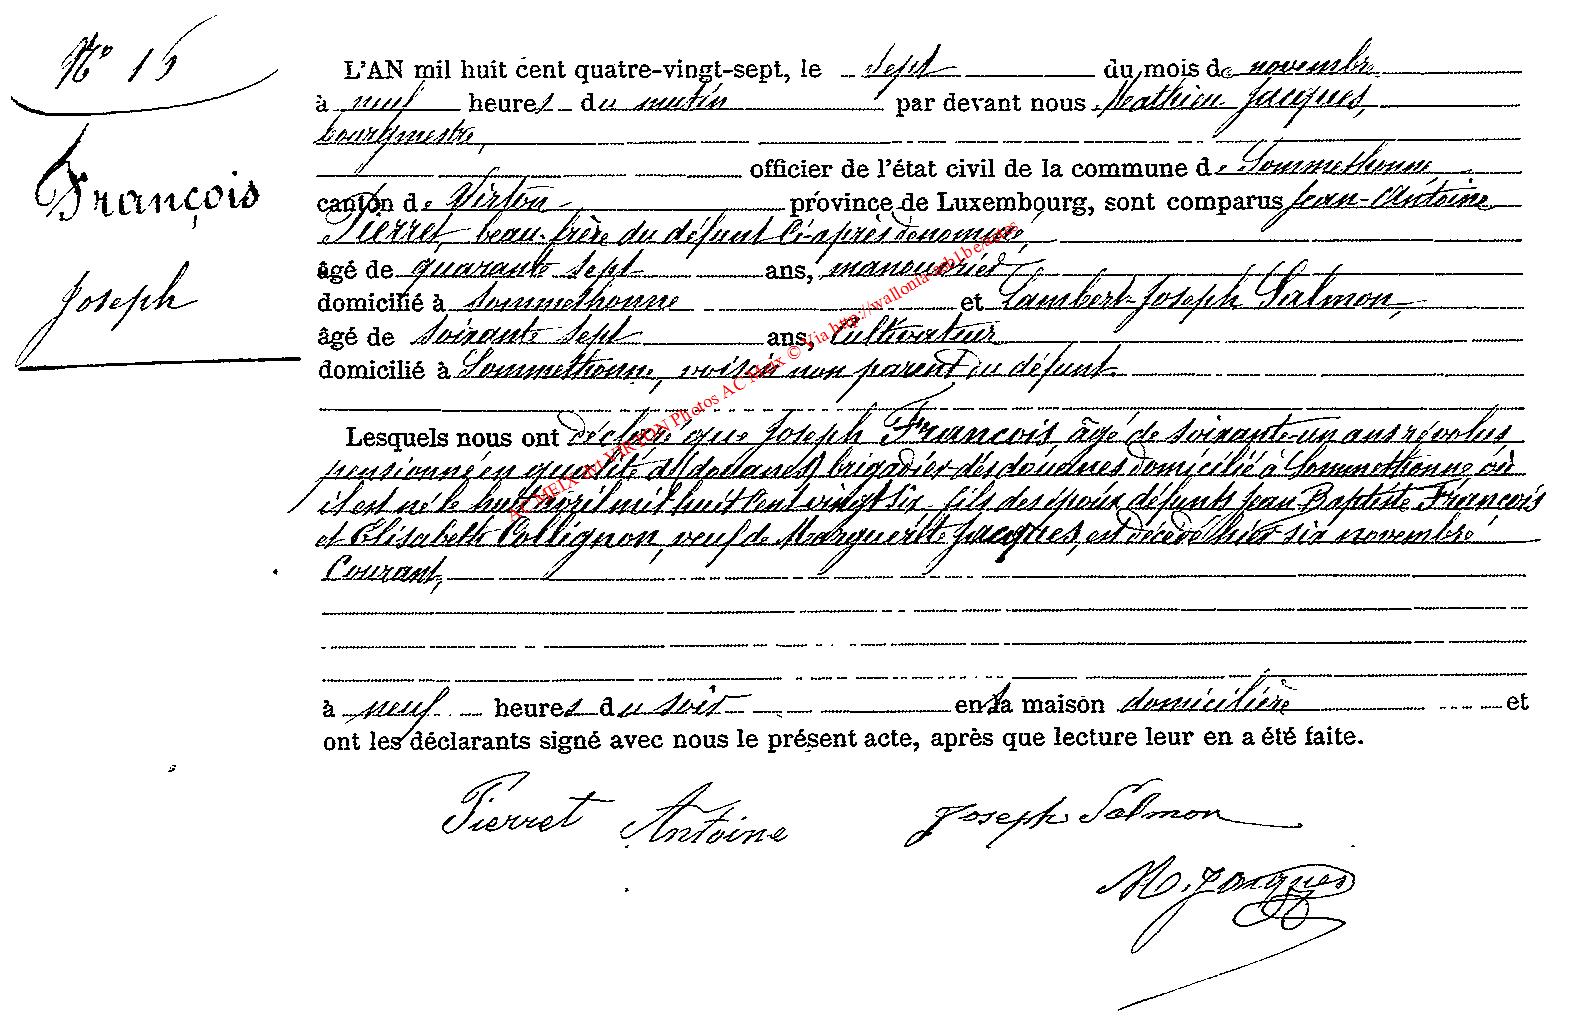 N° 15
François
Joseph
L'AN mil huit cent quatre-vingt-sept, le sept du mois de novembre
à neuf heures du matin par devant nous Mathieu Jacques,
bourgmestre,
officier de l'état civil de la commune de Sommethonne
canton de Virton province de Luxembourg, sont comparus Jean-Antoine
Pierret, beau-frère du défunt ci-après dénommé,
âgé de quarante sept ans, manouvrier
domicilié à Sommethonne et Lambert-Joseph Salmon,
âgé de soixante sept ans, cultivateur
domicilié à Sommethonne, voisin non parent du défunt.
Lesquels nous ont déclaré que Joseph François, âgé de soixante-un ans révolus
pensionné en qualité de (douanes) brigadier des douanes domicilié à Sommethonne où
il est né le huit avril mil huit cent vingt six, fils des époux défunts Jean Baptiste François
et Elisabeth Collignon, veuf de Marguerite Jacques, est décédé hier six novembre
courant,
à neuf heures du soir en sa maison domicilière et
ont les déclarants signé avec nous le présent acte, après que lecture leur en a été faite.
Pierret Antoine Joseph Salmon
M. Jacques
AC MEIX dvt VIRTON Photos AC Meix © Via http://wallonia-asbl.be/actes